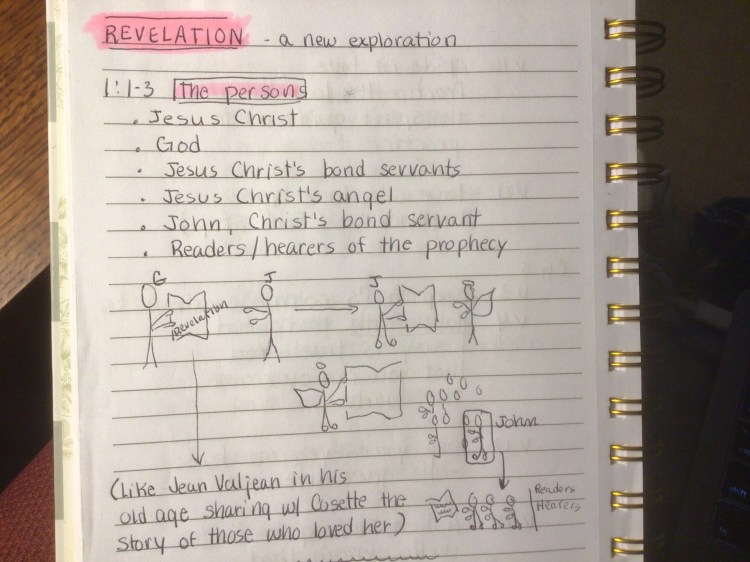 REVELATION - a new exploration
1:1-3 The persons
• Jesus Christ
• God
• Jesus Christ's bond servants
• Jesus Christ's angel
• John, Christ's bond servant
• Readers/hearers of the prophecy
G J J
Revelation
John
(Like Jean Valjean in his
old age sharing w/ Cosette the
story of those who loved her)
Readers
Hearers